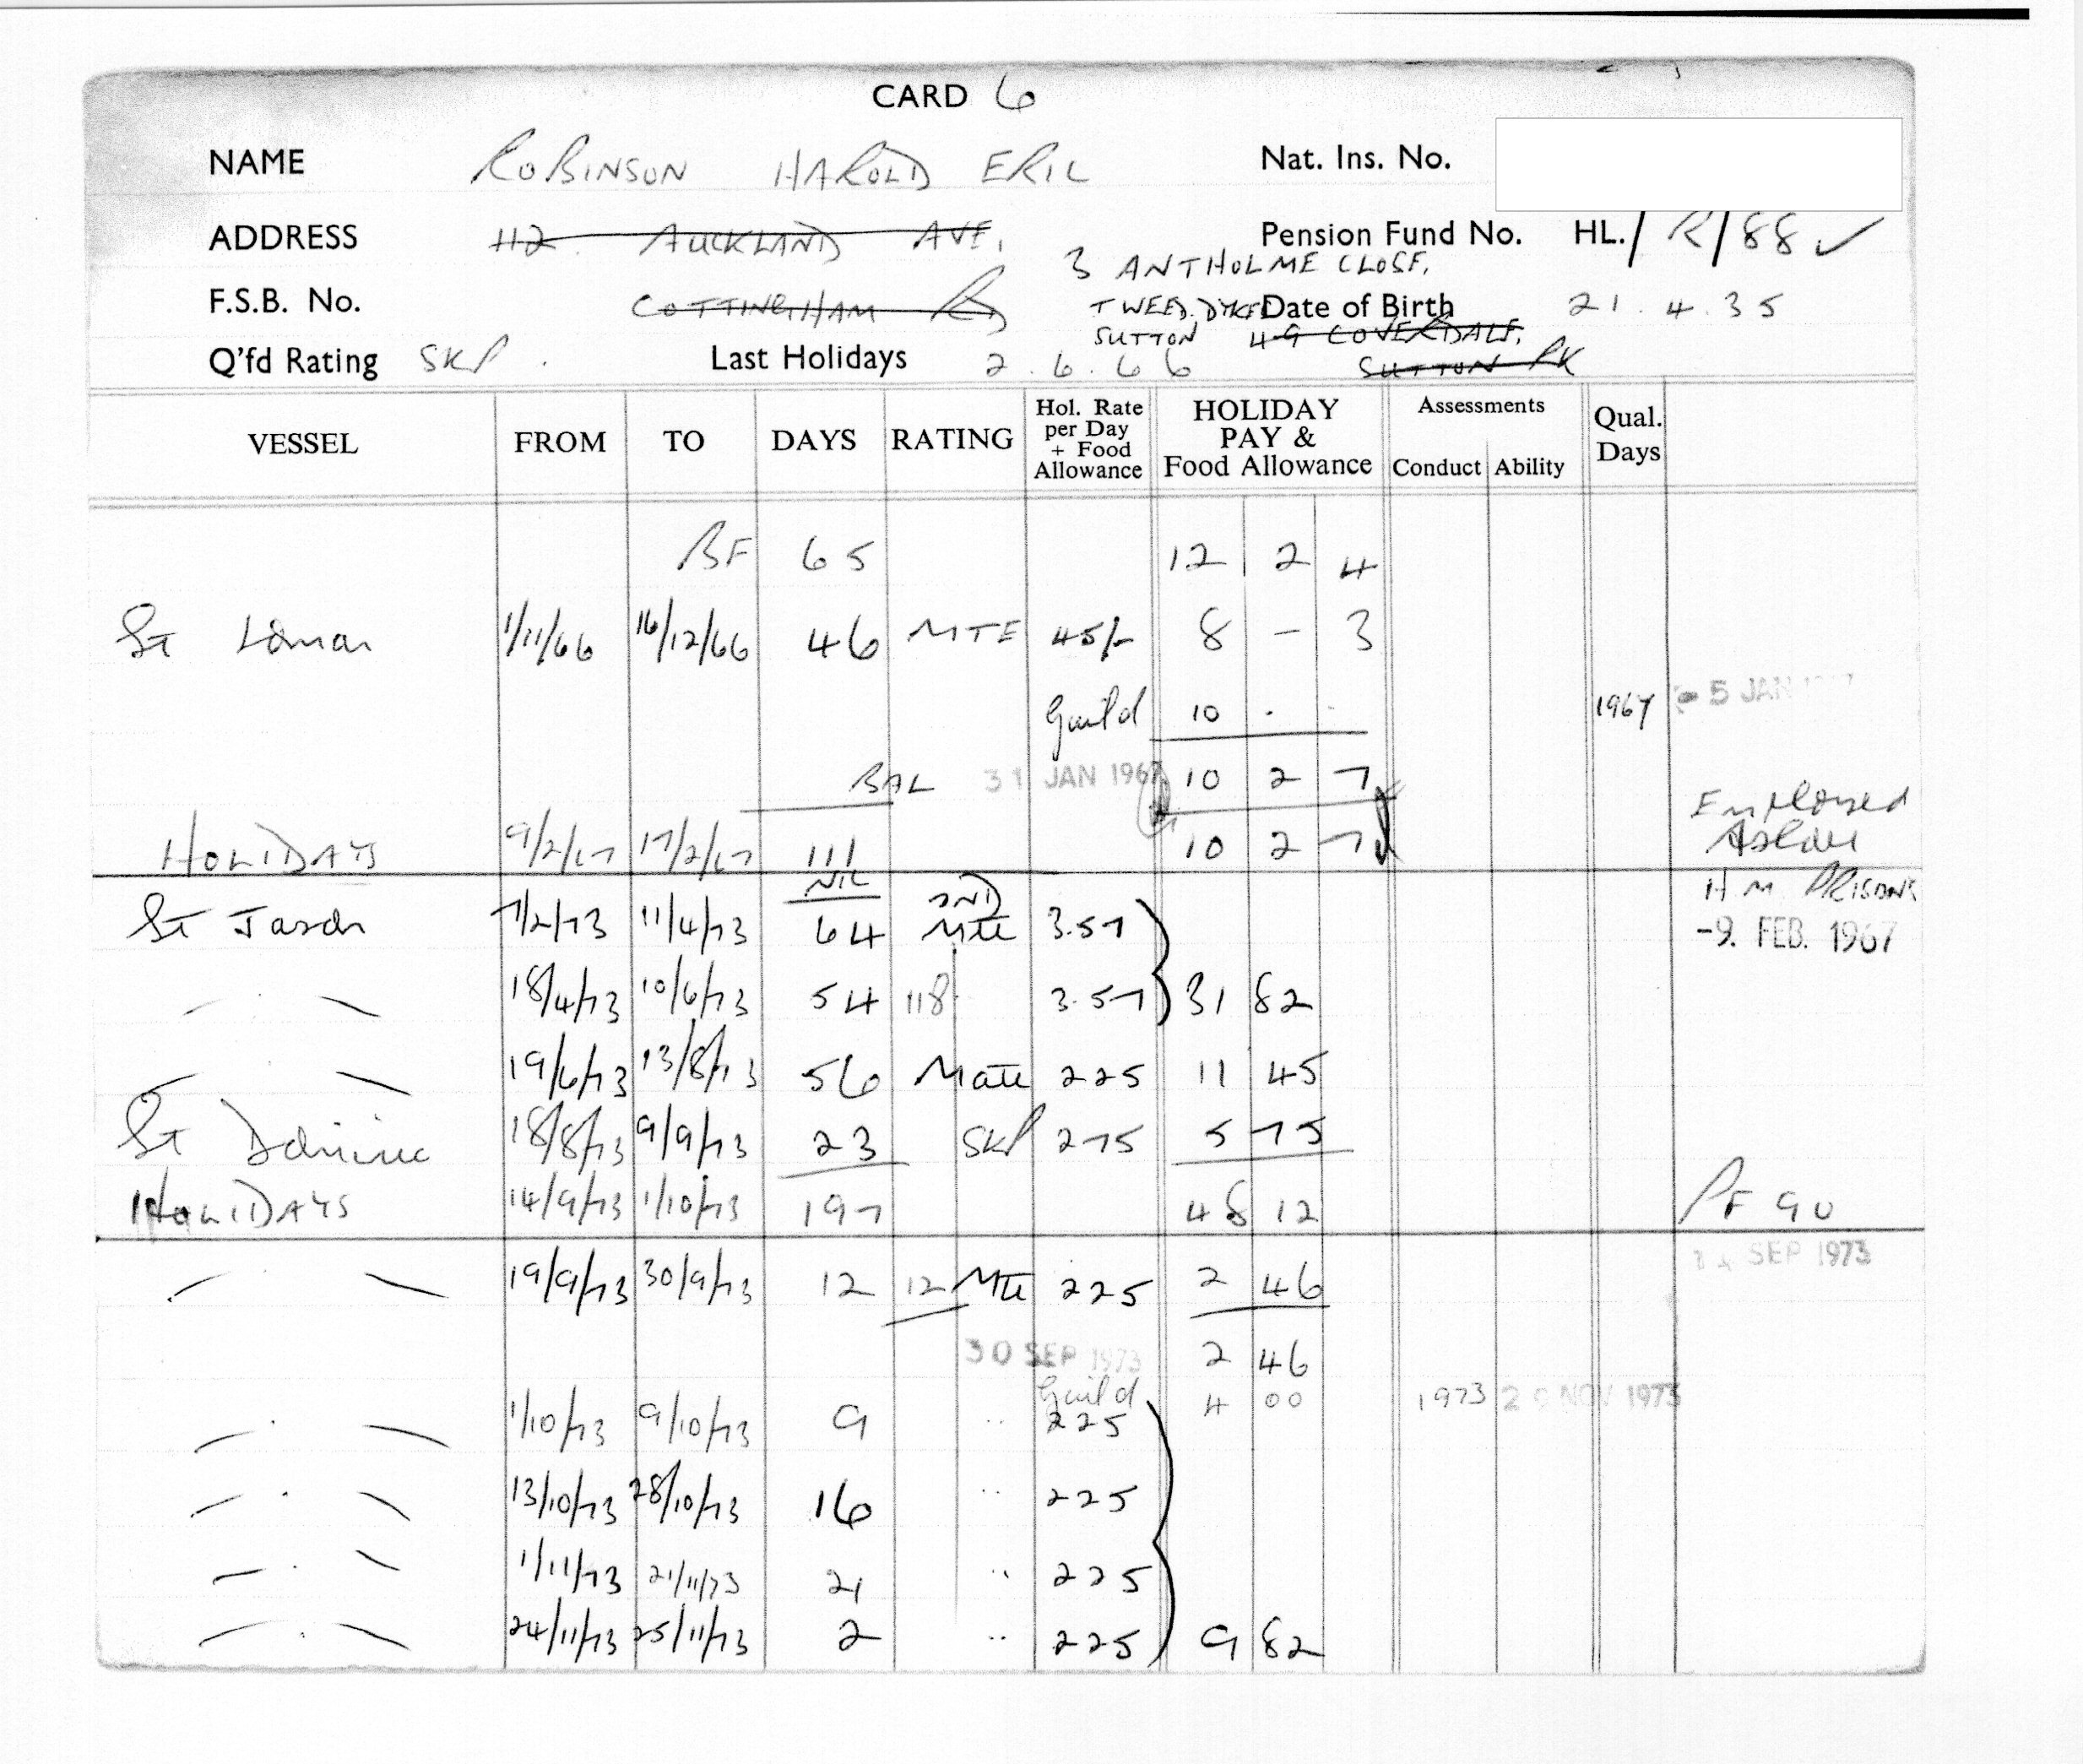 CARD 6
NAME ROBINSON HAROLD ERIC Nat. Ins. No.
ADDRESS 112 AUCKLAND AVE, Pension Fund No. HL./ R/88 ✓
3 ANTHOLME CLOSE,
F.S.B. No. COTTINGHAM RD TWEED.DYKE Date of Birth 21.4.35
SUTTON 49 COVERDALE,
Q'fd Rating SKP. Last Holidays 2.6.66 SUTTON PK
VESSEL FROM TO DAYS RATING Hol. Rate per Day + Food Allowance HOLIDAY PAY & Food Allowance Assessments Conduct Ability Qual. Days
BF 65 12 2 4
St Loman 1/11/66 16/12/66 46 MTE 45/- 8 - 3
Guild 10 . . 1967 -5 JAN
BAL 31 JAN 1967 10 2 7
Employed
HOLIDAYS 9/2/67 17/2/67 111 10 2 7 Ashore
NIL H.M. PRISONS
St Jason 7/2/73 11/4/73 64 2ND Mte 3.57 -9. FEB. 1967
18/4/73 10/6/73 54 118 3.57 31 82
19/6/73 13/8/73 56 Mate 225 11 45
St Dominic 18/8/73 9/9/73 23 SKP 275 5 75
HOLIDAYS 14/9/73 1/10/73 197 48 12 PF 90
19/9/73 30/9/73 12 12 Mte 225 2 46 SEP 1973
30 SEP 1973 2 46
Guild 4 00 1973 NOV 1973
1/10/73 9/10/73 9 " 225
13/10/73 28/10/73 16 " 225
1/11/73 21/11/73 21 " 225
24/11/73 25/11/73 2 " 225 9 82